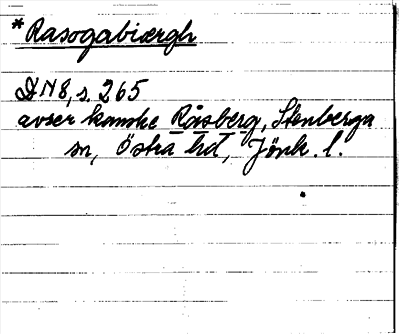 *Rasogabiærgh
DN 8, s. 265
avser kanske Råsberg, Stenberga
sn, Östra hd, Jönk. l.